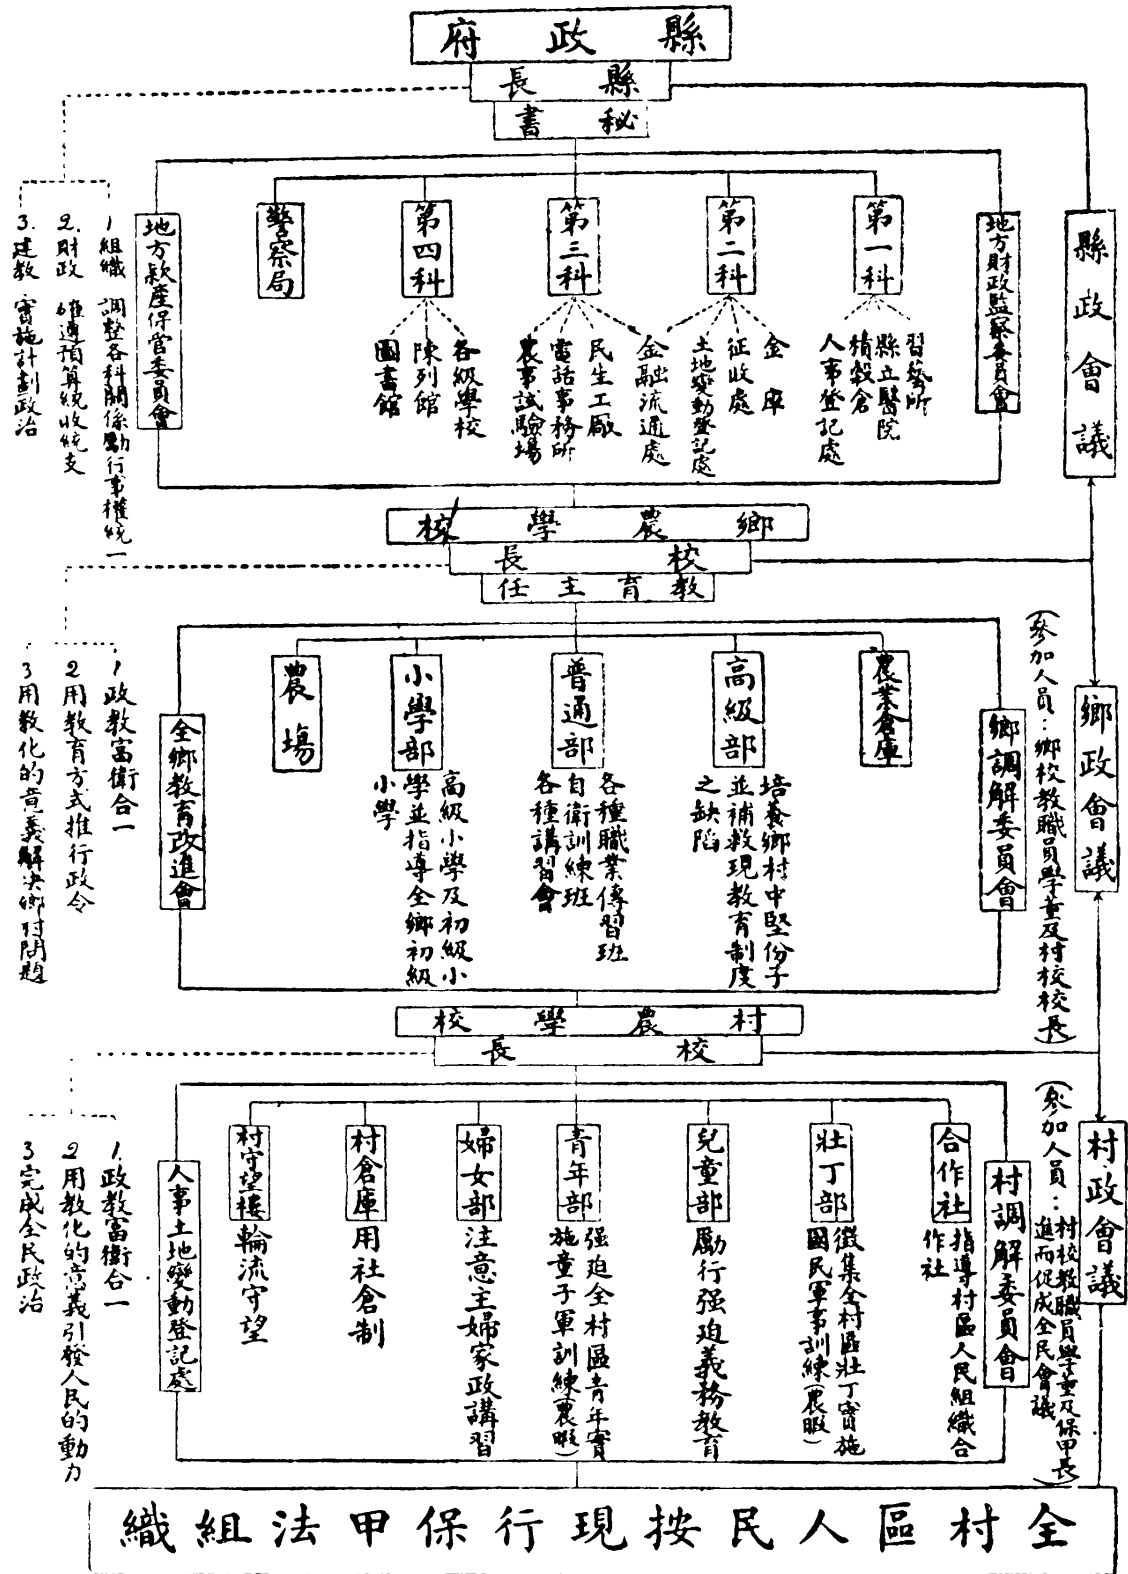 縣政府
縣長
秘書
縣政會議
地方財政監察委員會
第一科
習藝所
縣立醫院
積穀倉
人事登記處
第二科
金庫
征收處
土地變動登記處
金融流通處
第三科
民生工廠
電話事務所
農事試驗場
第四科
各級學校
陳列館
圖書館
警察局
地方款產保管委員會
1 組織 調整各科關係勵行事權統一
2. 財政 確遵預算統收統支
3. 建教 實施計劃政治
鄉農學校
校長
教育主任
鄉政會議
(參加人員:鄉校教職員學董及村校校長)
鄉調解委員會
農業倉庫
高級部
培養鄉村中堅份子
並補救現教育制度
之缺陷
普通部
各種職業傳習班
自衛訓練班
各種講習會
小學部
高級小學及初級小
學並指導全鄉初級
小學
農場
全鄉教育改進會
1 政教富衛合一
2 用教育方式推行政令
3 用教化的意義解決鄉村問題
村農學校
校長
村政會議
(參加人員:村校教職員學董及保甲長)
進而促成全民會議
村調解委員會
合作社
指導村區人民組織合
作社
壯丁部
徵集全村區壯丁實施
國民軍事訓練(農暇)
兒童部
勵行强迫義務教育
青年部
强迫全村區青年實
施童子軍訓練(農暇)
婦女部
注意主婦家政講習
村倉庫
用社倉制
村守望樓
輪流守望
人事土地變動登記處
1. 政教富衛合一
2 用教化的意義引發人民的動力
3 完成全民政治
全村區人民按現行保甲法組織